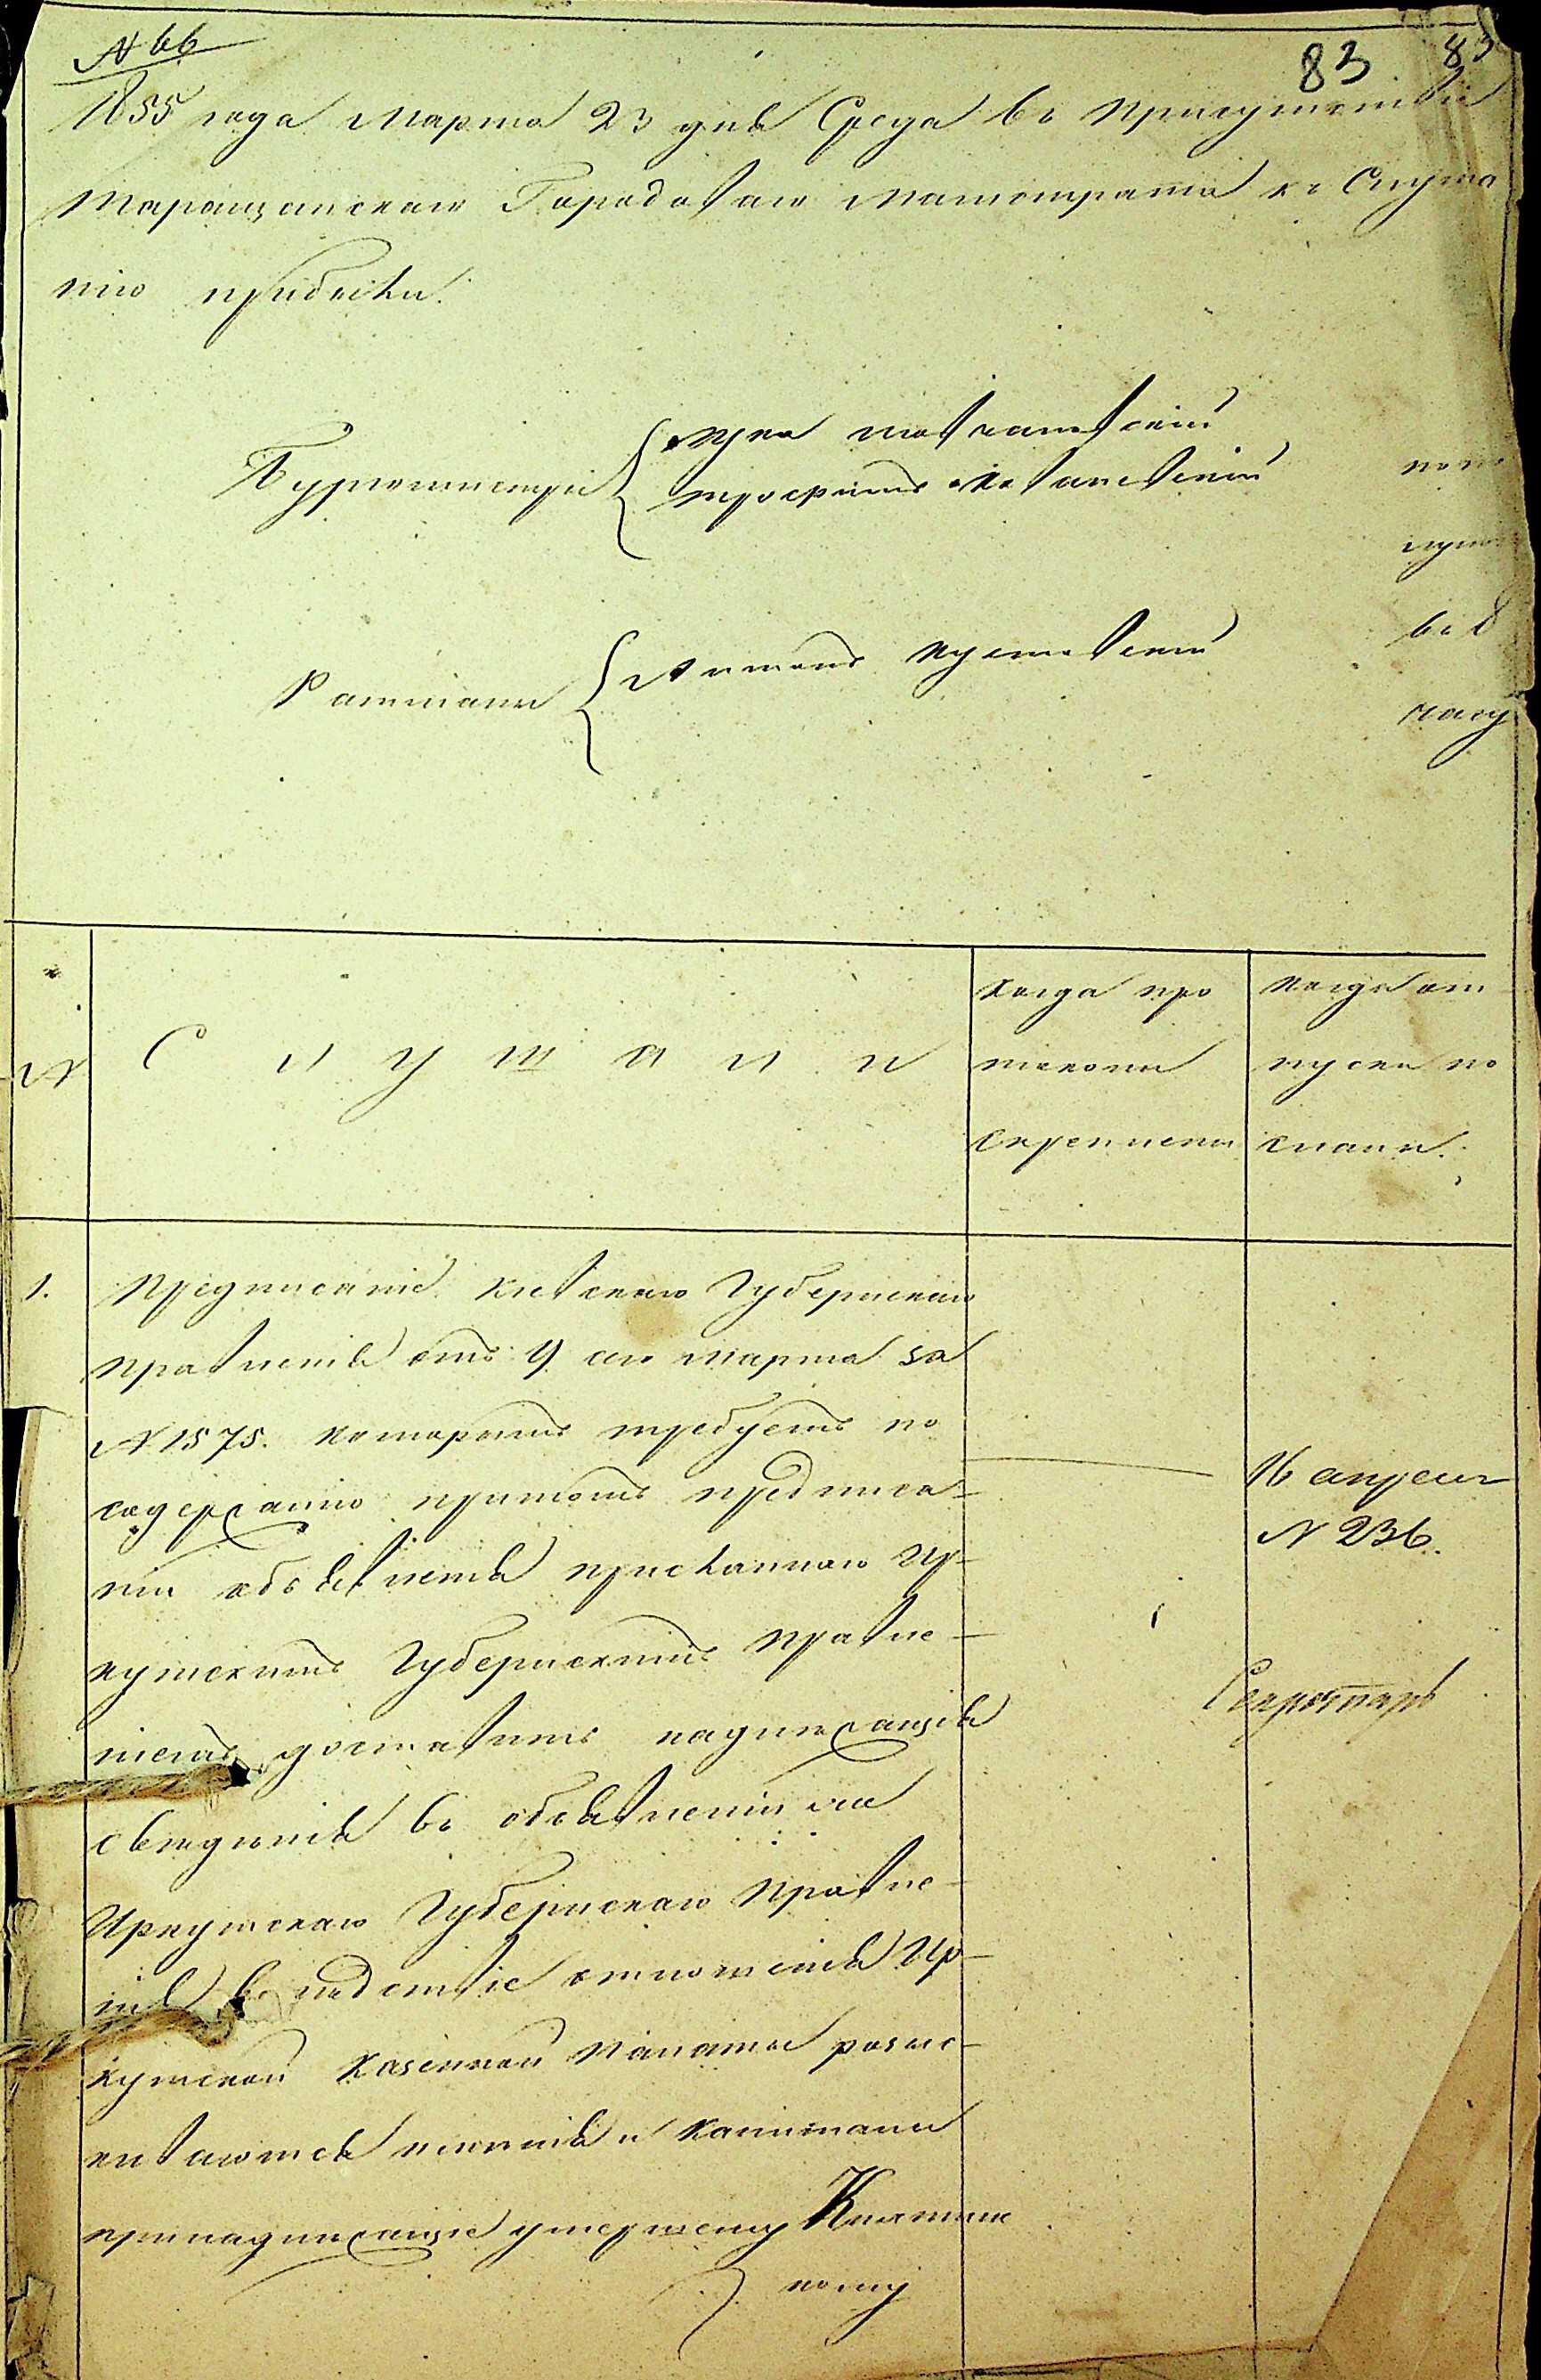 № 66
83 83
1855 года Марта 23 дня Среда въ присутствіе
Таращанскаго Городоваго Магистрата къ Слуша
нію прибыли.
Бургомистры
Ратманы
№
С л у ш а л и
Когда про
токолы
скреплены
Когда от
пуски по
сланы.
1.
Предписаніе Кіевскаго Губернскаго
Правленія отъ 9 сего Марта за
№ 1575. которымъ требуетъ по
содержанію при томъ предписа-
ніи объявленія присланнаго Ир-
кутскимъ Губернскимъ Правле-
ніемъ доставить надлежащія
сведенія въ объявленіи же
Иркутскаго Губернскаго Правле-
нія въ следствіе отношенія Ир-
кутской Казенной Палаты розыс-
киваются именія и капиталы
принадлежащіе умершему
16 апреля
№ 236.
Секретарь